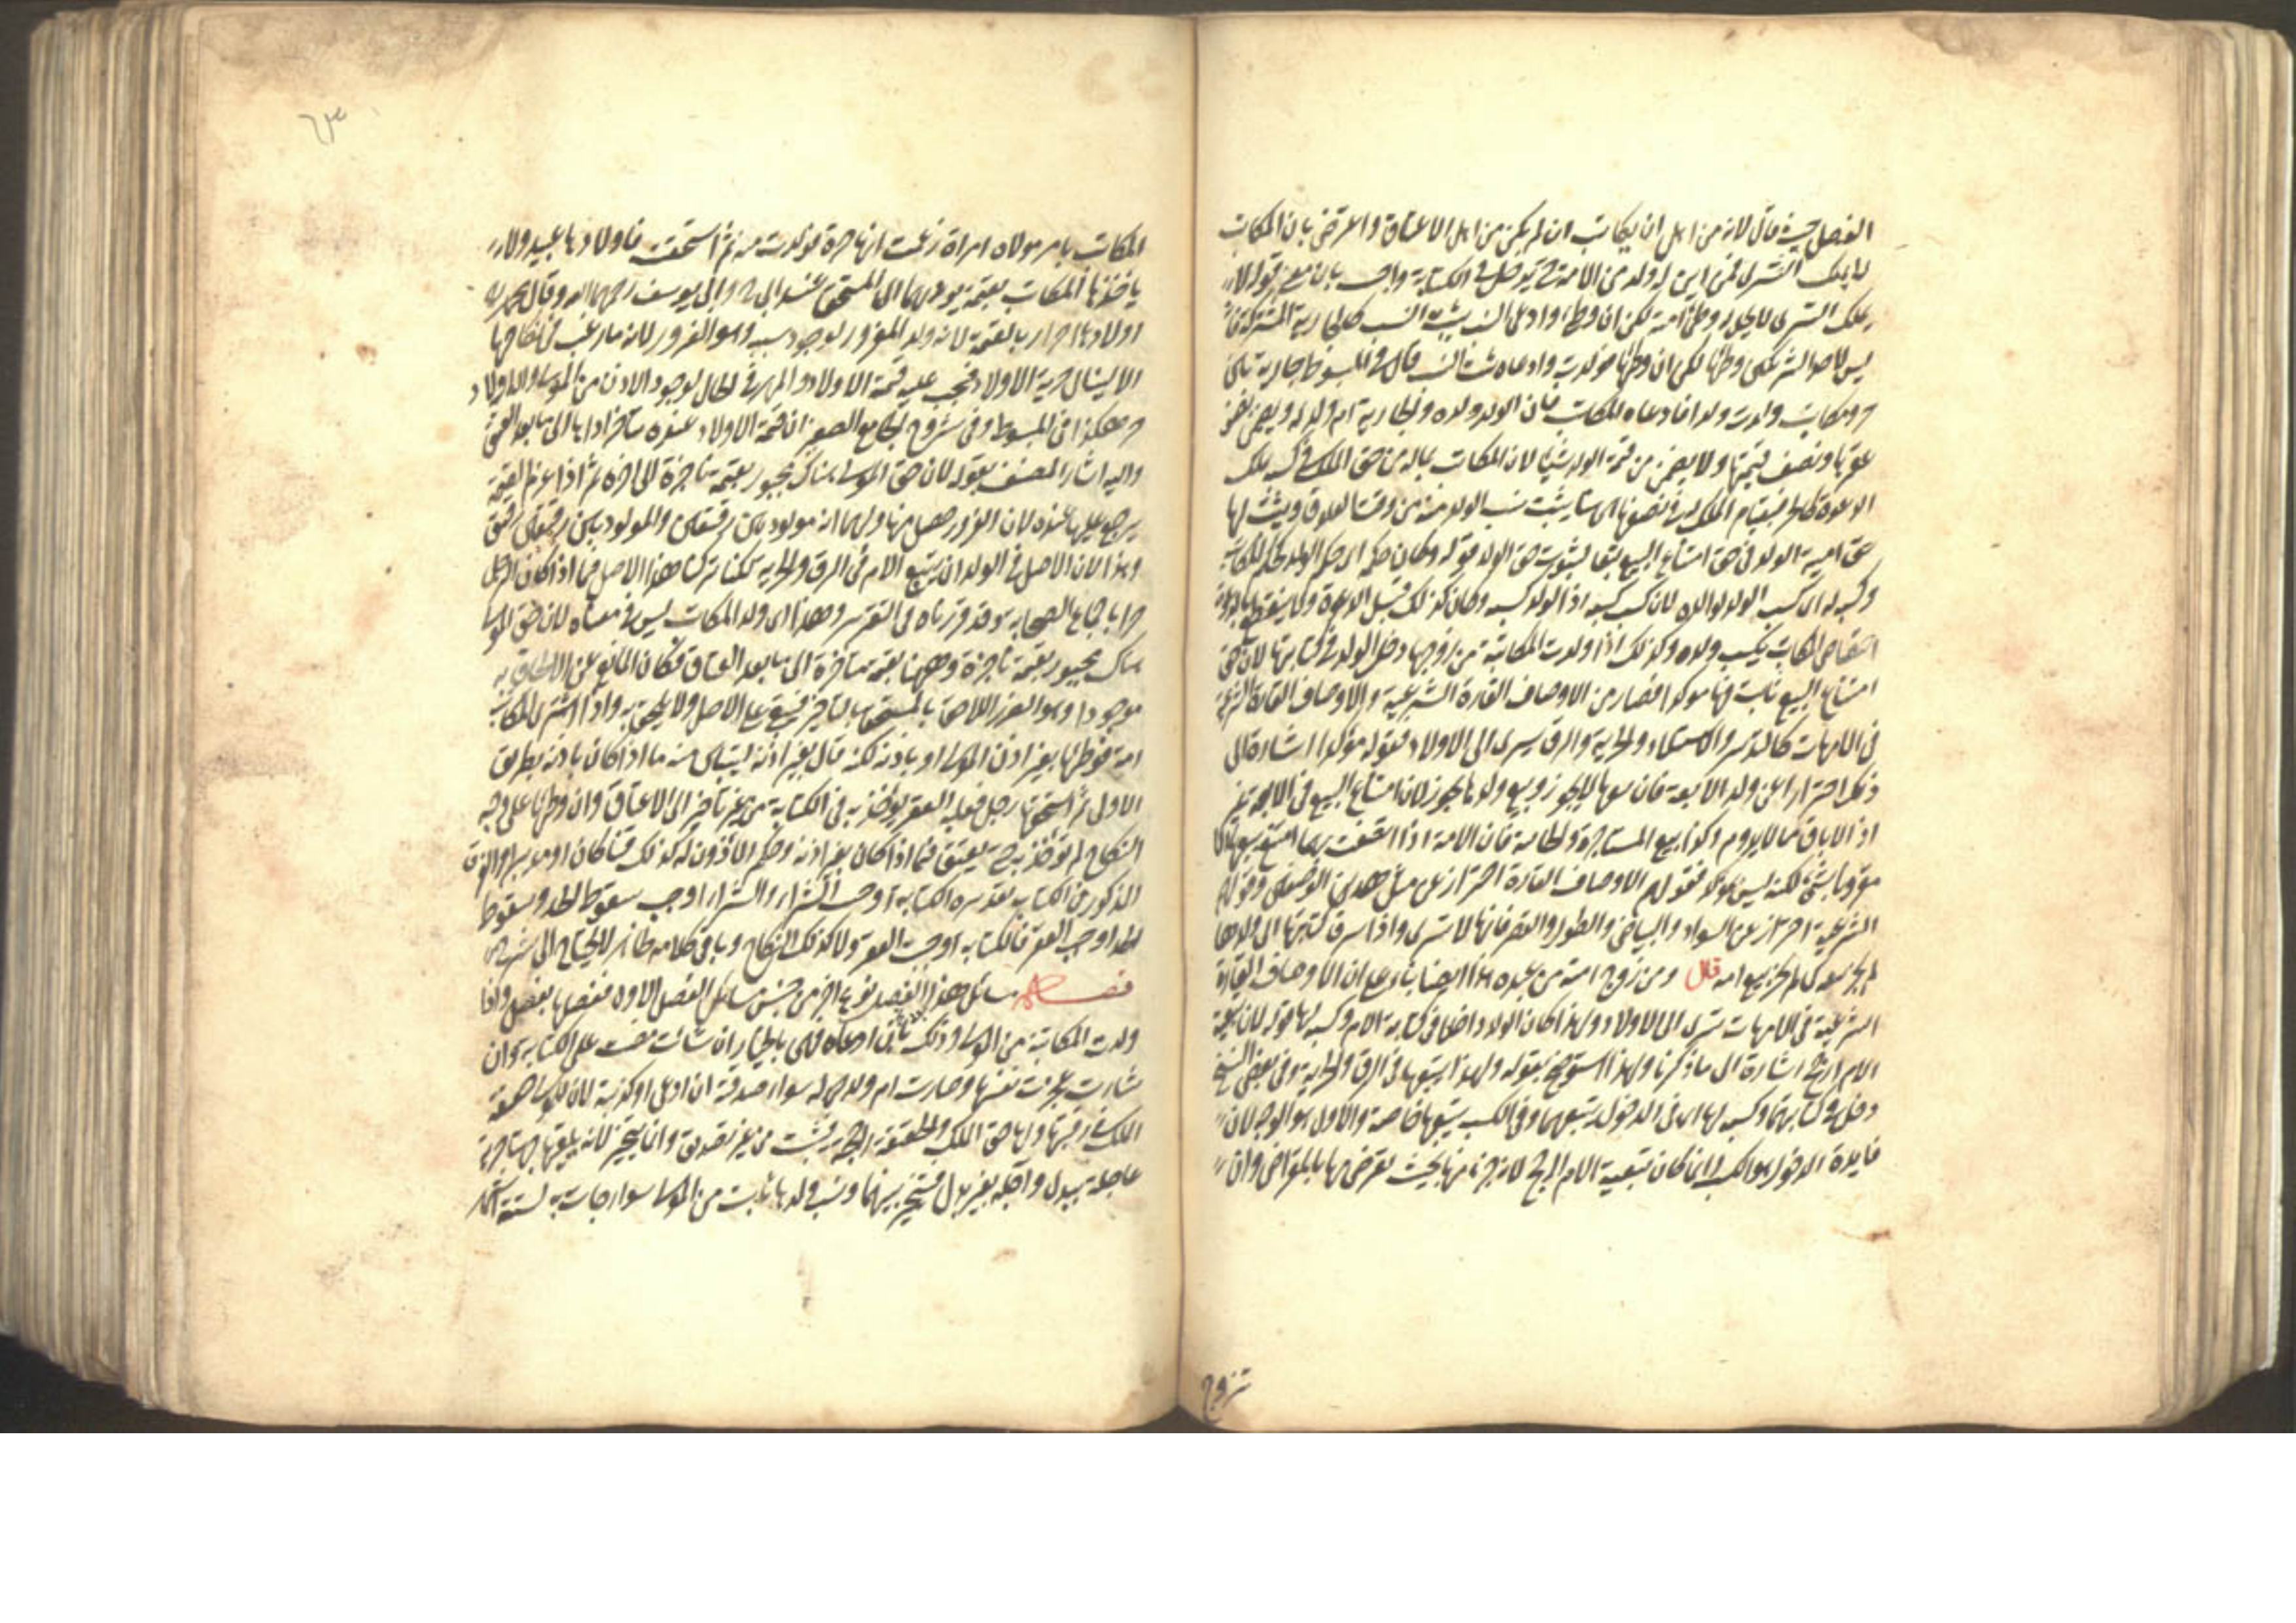 الفصل حيث قال لانه من اهل ان يكاتب ان لم يكن من اهل الاعتاق واعترض بان المكاتب
لا يملك التسرى فمن اين له ولد من الامة حتى يدخل فى الكتابة واجيب بان معنى قوله لا
يملك التسرى لا يحل له وطئ امته لكن ان وطئ وادعى النسب يثبت النسب كالجارية المشتركة فانه
ليس لاحد الشريكين وطئها لكن ان وطئها فولدت وادعاه ثبت النسب قال فى المبسوط جارية بين
حر ومكاتب ولدت ولدا فادعاه المكاتب فان الولد ولده والجارية ام ولد له ويضمن نصف
عقرها ونصف قيمتها ولا يضمن من قيمة الولد شيئا لان المكاتب بماله من حق الملك فى كسبه يملك
الدعوة كالحر فبقيام الملك له فى نصفها يثبت نسب الولد منه من وقت العلوق ويثبت لها
حق امية الولد فى حق امتناع البيع تبعا لثبوت حق الولد قوله وكان حكمه اى حكم الولد كحكم المكاتب
وكسبه له اى كسب الولد لوالده لان كسب كسبه اذ الولد كسبه وكان كذلك قبل الدعوة ولا ينقطع بالدعوة
اختصاص المكاتب بكسب ولده وكذلك اذا ولدت المكاتبة من زوجها دخل الولد فى كتابتها لان حق
امتناع البيع ثابت فيها موكدا فصار من الاوصاف القارة الشرعية والاوصاف القارة الشرعية
فى الامهات كالتدبير والاستيلاد والحرية والرق يسرى الى الاولاد فقوله موكدا اشارة الى
ذلك احترازا عن ولد الآبقة فان بيعها لا يجوز وبيع ولدها يجوز لان امتناع البيع فى الآبقة غير
اذ الاباق مما لا يدوم وكذا بيع المستاجرة والجانية فان الامة اذا اتصفت بهما امتنع بيعها
مقرونا بشئ لكنه ليس بموكد فقولهم الاوصاف القارة احتراز عن مثل هذين الوصفين وقولهم
الشرعية احتراز عن السواد والبياض والطول والقصر فانها لا تسرى واذا سرت كتابتها الى ولدها
لم يجز بيعه كما لم يجز بيع امه قال ومن زوج امته من عبده هذا ايضا بناء على ان الاوصاف القارة
الشرعية فى الامهات تسرى الى الاولاد ولهذا كان الولد داخلا فى كتابة الام وكسبه لها قوله لان تبعية
الام ارجح اشارة الى ما ذكرنا ولهذا استوضح بقوله ولهذا يتبعها فى الرق والحرية وفى بعض النسخ
دخل فى كتابتهما وكسبه لها اى فى الدخول يتبعهما وفى الكسب يتبعها خاصة والاول هو الوجه لان
فايدة الدخول هو الكسب وانما كان تبعية الام ارجح لانه جزء منها بحيث يقرض منها بالمقراض وان
تزوج
المكاتب بامر مولاه امراة زعمت انها حرة فولدت منه ثم استحقت فاولادها عبيد ولا
ياخذها المكاتب بقيمة يوديها الى المستحق عند ابى ح وابى يوسف رحمهما الله وقال محمد
اولادها احرار بالقيمة لانه ولد المغرور لوجود سببه وهو الغرور لانه ما رغب فى نكاحها
الا لينال حرية الاولاد فيجب عليه قيمة الاولاد والمهر فى الحال لوجود الاذن من المولى
هكذا فى المبسوط وفى شروح الجامع الصغير ان قيمة الاولاد عنده متاخر اداؤها الى ما بعد العتق
واليه اشار المصنف بقوله لان حق المولى هناك مجبور بقيمة ناجزة الى اخره ثم اذا غرم القيمة
يرجع عليها عنده لان الغرور حصل منها ولهما انه مولود بين رقيقين والمولود بين رقيقين رقيق
وهذا لان الاصل فى الولد ان يتبع الام فى الرق والحرية لكنا تركنا هذا الاصل فيما اذا كان الرجل
حرا باجماع الصحابة وقد قررناه فى التقرير وهذا اى ولد المكاتب ليس فى معناه لان حق المولى
هناك مجبور بقيمة ناجزة وههنا بقيمة متاخرة الى ما بعد العتق فكان المانع عن الالحاق به
موجودا وهو الضرر اللاحق بالمستحق بالتاخير فبقى على الاصل ولا يلحق به واذا اشترى المكاتب
امة فوطئها بغير اذن المولى او باذنه لكنه قال بغير اذنه ليتبين منه ما اذا كان باذنه بطريق
الاولى ثم استحقها رجل فعليه العقر يوخذ به فى الكتابة من غير تاخير الى الاعتاق وان وطئها على وجه
النكاح لم يوخذ به حتى يعتق فيما اذا كان بغير اذنه وحكم الماذون له كذلك قنا كان او مدبرا والفرق
المذكور فى الكتاب تقديره الكتابة اوجبت الشراء والشراء اوجب سقوط الحد وسقوط
الحد اوجب العقر فالكتابة اوجبت العقر ولا كذلك النكاح وباقى كلامه ظاهر لا يحتاج الى شرح
فصل مسائل هذا الفصل نوع اخر من جنس مسائل الفصل الاول ففصلها بفصل واذا
ولدت المكاتبة من المولى وذلك بان ادعاه فهى بالخيار ان شاءت مضت على الكتابة وان
شاءت عجزت نفسها وصارت ام ولد له سواء صدقته ان ادعى او كذبته لان للمولى حقيقة
الملك فى رقبتها ولها حق الملك والحقيقة راجحة فيثبت من غير تصديق وانما يتخير لانه يلقيها جهتا حرية
عاجلة ببدل وآجلة بغير بدل فتتخير بينهما ونسب ولدها ثابت من المولى سواء جاءت به لستة اشهر